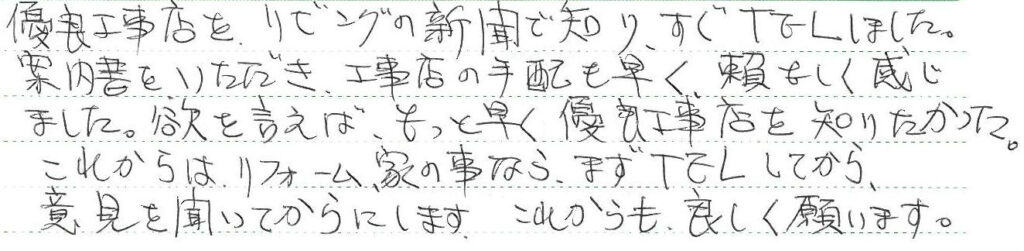 優良工事店を、リビングの新聞で知り、すぐTELしました。
案内書をいただき、工事店の手配も早く、頼もしく感じ
ました。欲を言えば、もっと早く優良工事店を知りたかった。
これからは、リフォーム、家の事なら、まずTELしてから、
意見を聞いてからにします。これからも、良しく願います。